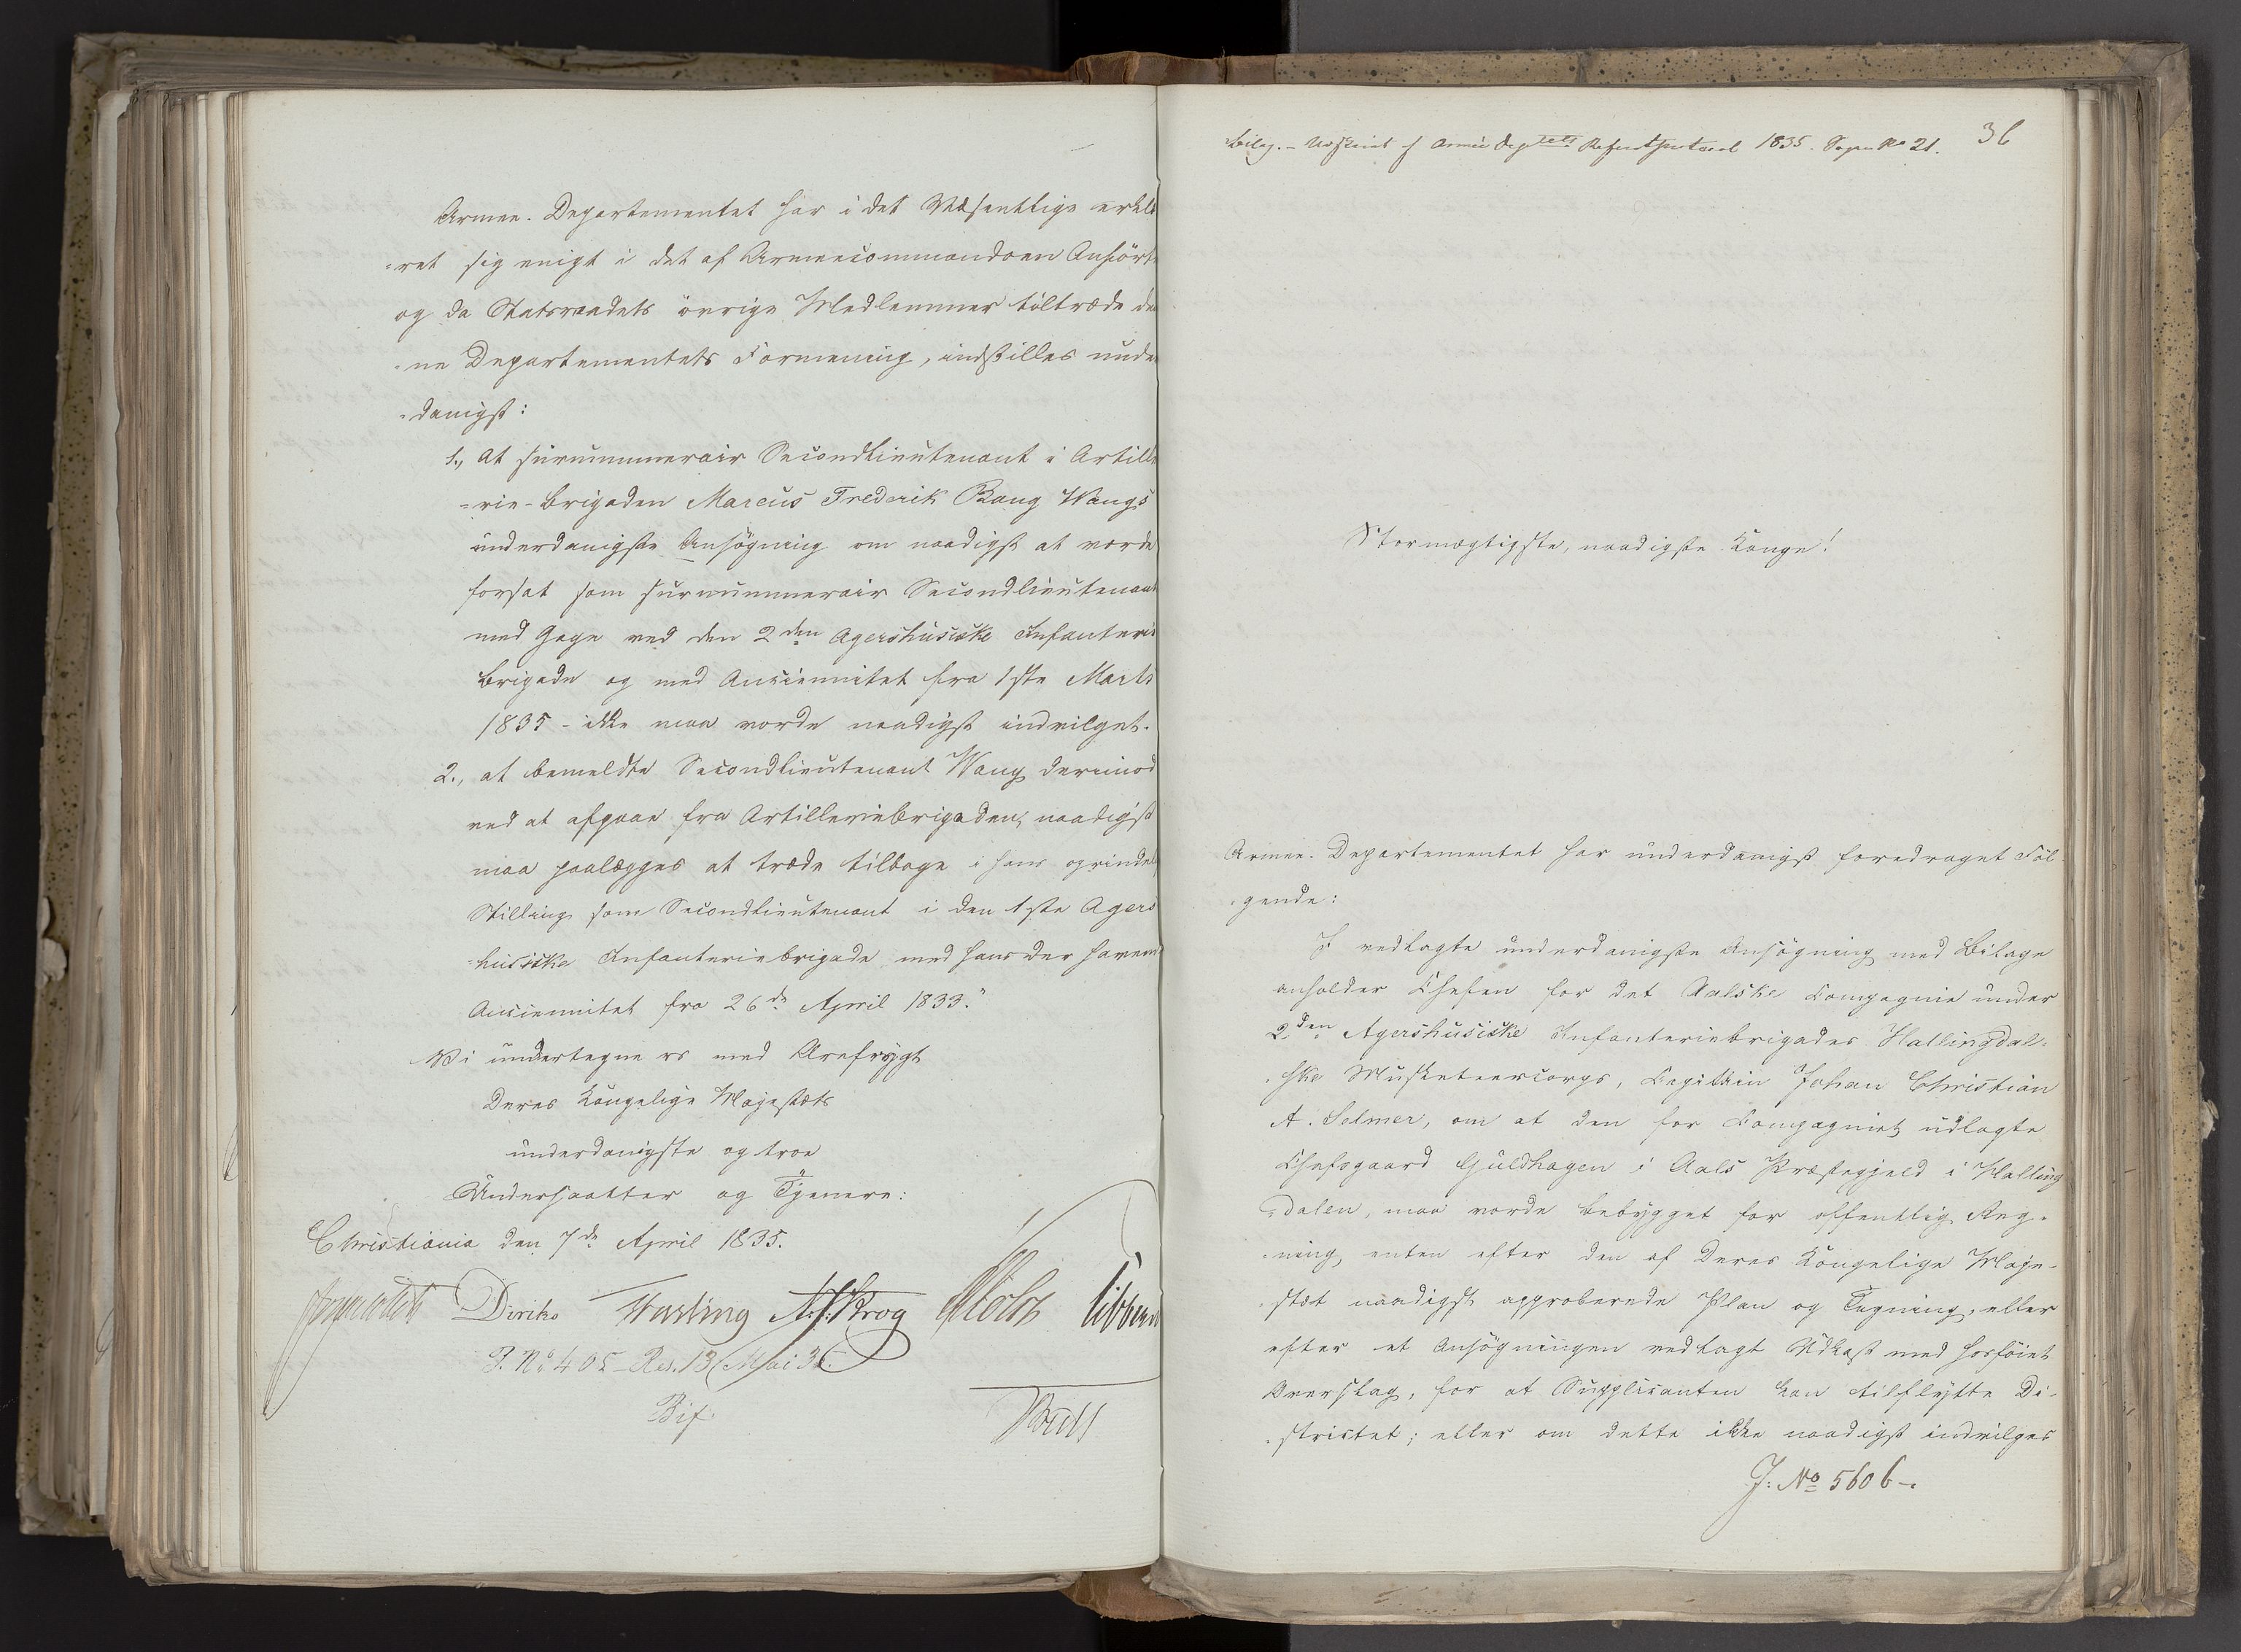 Armee-Departementet har i det Væsentlige erklæ
-ret sig enigt i det af Armeecommandoen Anførte
og da Statsraadets øvrige Medlemmer tiltræde den
-ne Departementets Formening, indstilles under
-danigst:
1., At surnummerair Secondlieutenant i Artille
-rie-Brigaden Marcus Frederik Bang Wangs
underdanigste Ansøgning om naadigst at vorde
forsat som surnummerair Secondlieutenant
med Gage ved den 2den Agershusiske Infanterie
brigade og med Anciennitet fra 1ste Marts
1835 - ikke maa vorde naadigst indvilget.
2., at bemeldte Secondlieutenant Wang derimod
ved at afgaae fra Artilleriebrigaden, naadigst
maa paalægges at træde tilbage i hans oprindel
Stilling som Secondlieutenant i den 1ste Agers
-husiske Infanteriebrigade med hans der havende
Anciennitet fra 26de April 1833."
Vi undertegne os med Ærefrygt
Deres Kongelige Majestæts
underdanigste og troe
Undersaatter og Tjenere:
Christiania den 7de April 1835.
Diriks Fasting Krog Holst Vibe
P. No 405 - Res. 13 Mai 35.
Bif.
Bull
Bilag. - Uskrivt f Armée Deptets Referatprotocol 1835. No 21. 36
Stormægtigste, naadigste Konge!
Armee-Departementet har underdanigst foredraget Føl
-gende:
I vedlagte underdanigste Ansøgning med Bilage
anholder Chefen for det Aalske Compagnie under
2den Agershusiske Infanteriebrigades Hallingdal-
-ske Musketeercorps, Capitain Johan Christian
A. Selmer, om at den for Compagniet udlagte
Chefsgaard Guldhagen i Aals Præstegjeld i Halling
-dalen, maa vorde bebygget for offentlig Reg-
-ning, enten efter den af Deres Kongelige Maje-
-stæt naadigst approberede Plan og Tegning, eller
efter et Ansøgningen vedlagt Udkast med hosføiet
Overslag, for at Supplicanten kan tilflytte Di-
-strictet; eller om dette ikke naadigst indvilges
J: No 5606-.